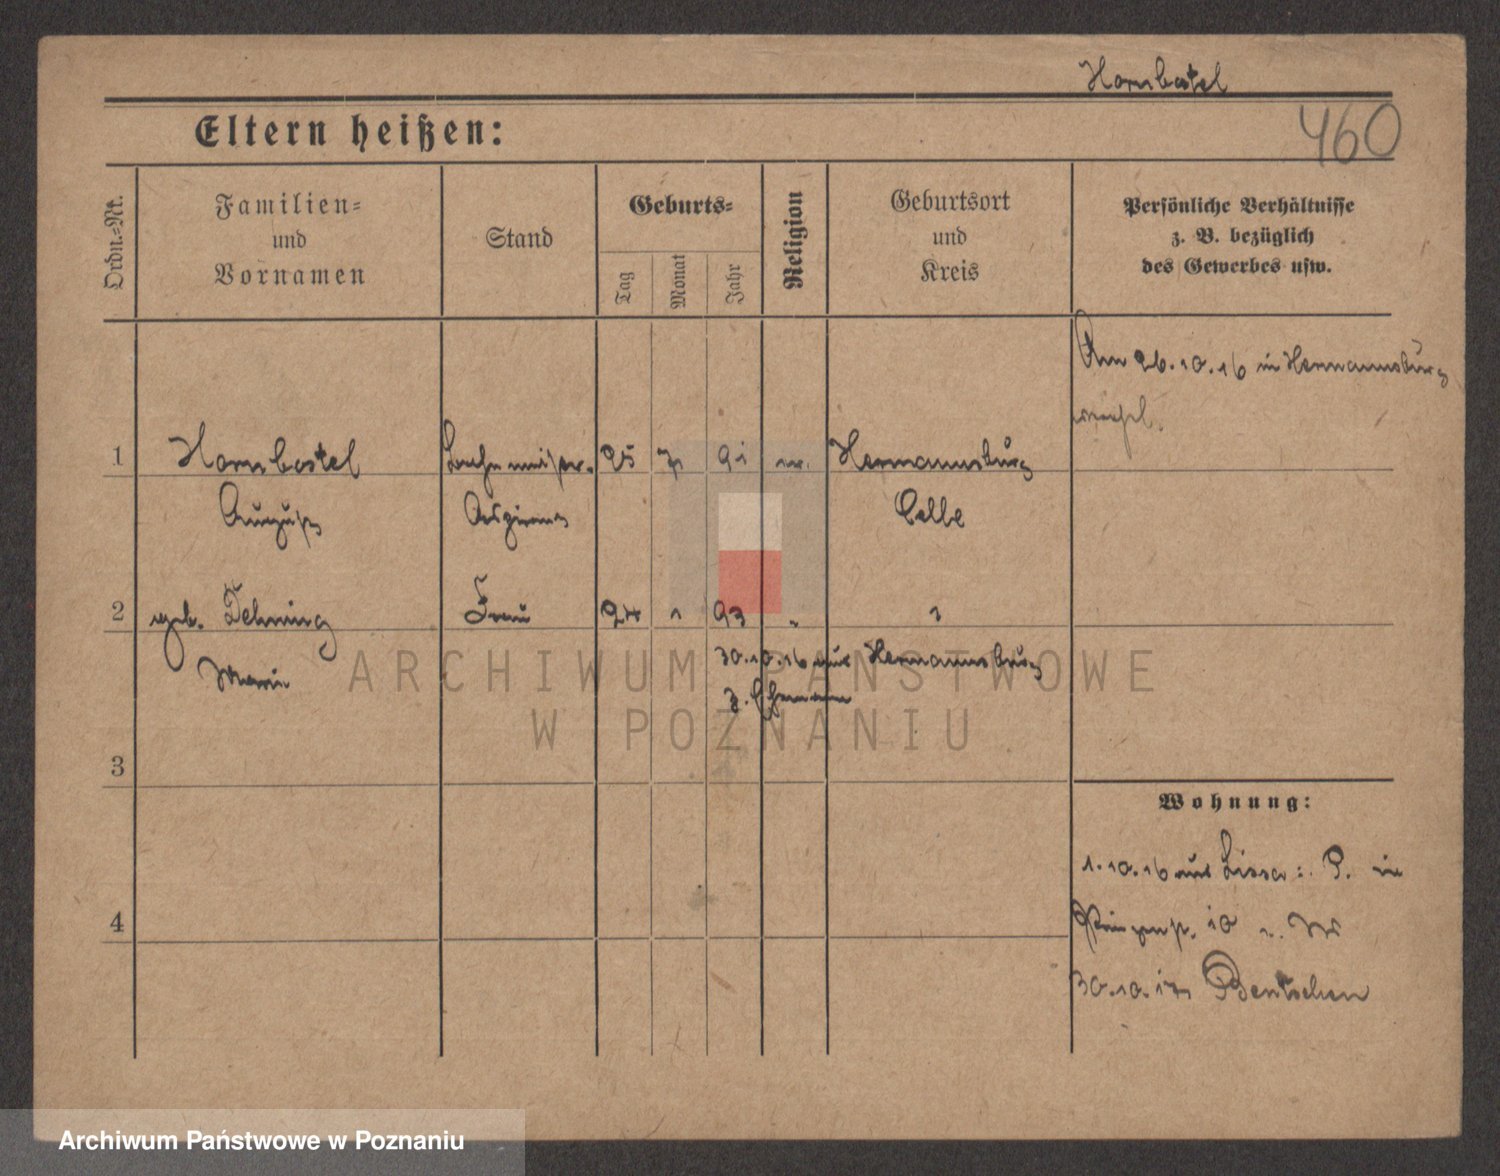 Hornbostel
460
Eltern heißen:
Ordn.-Nr.
Familien-
und
Vornamen
Stand
Geburts-
Tag
Monat
Jahr
Religion
Geburtsort
und
Kreis
Persönliche Verhältnisse
z. B. bezüglich
des Gewerbes usw.
Am 26.10.16 in Hermannsburg
1 Hornbostel 25 7 91 Hermannsburg
August Aspirant Celle
2 geb. Dehning Frau 24 " 93 "
Marie 30.10.16 aus Hermannsburg
z. Ehemann
3
Wohnung:
1.10.16 aus Lissa i. P. in
4
Prinzenstr. 10
30.10.17 Bentschen
ARCHIWUM PAŃSTWOWE
W POZNANIU
Archiwum Państwowe w Poznaniu